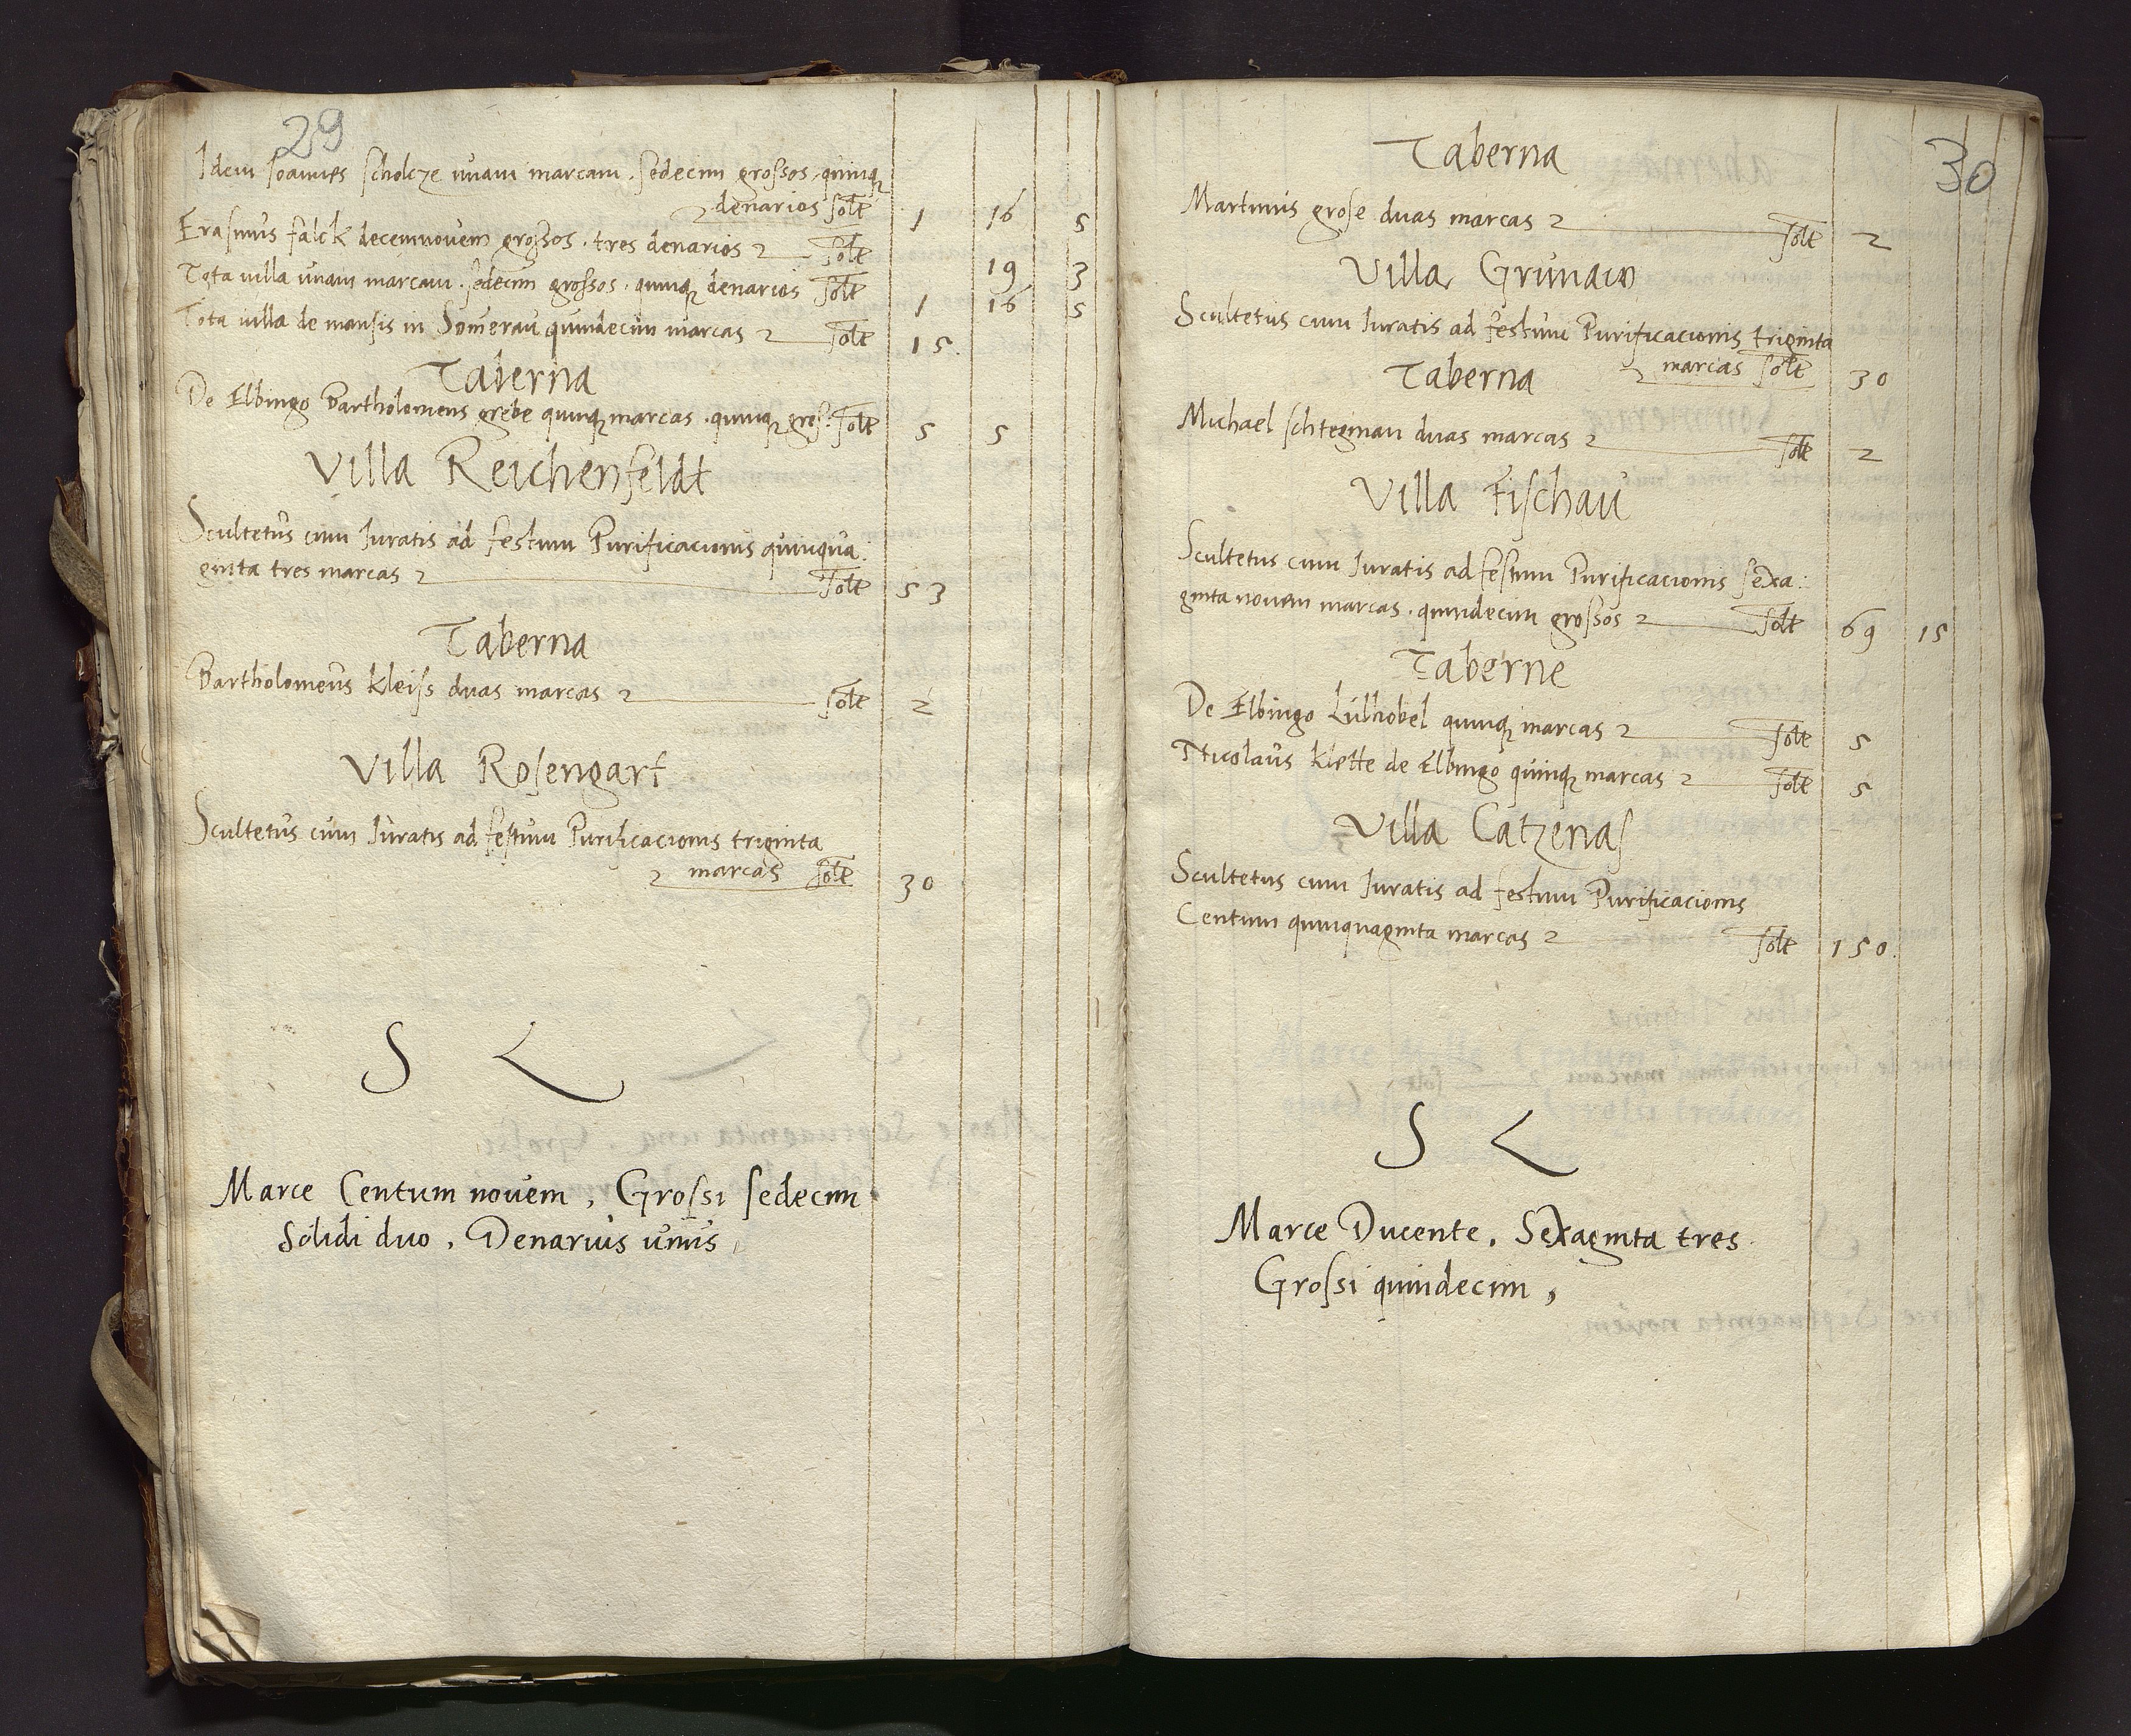 29
Idem Joannes scholcze unam marcam . sedecim grossos . quinq
denarios solt 1 16 5
Erasmus falck decemnovem grossos . tres denarios solt 19 3
Tota villa unam marcam . sedecim grossos . quinq denarios solt 1 16 5
Tota villa de mansis in Somerau quindecim marcas solt 15.
Taberna
De Elbingo Bartholomeus grebe quinq marcas . quinq gros. solt 5 5
Villa Reichenfeldt
Scultetus cum Juratis ad festum Purificacionis quinqua:
ginta tres marcas solt 53
Taberna
Bartholomeus kleiss duas marcas solt 2
Villa Rosengart
Scultetus cum Juratis ad festum Purificacionis triginta
marcas solt 30
S L
Marce Centum novem, Grossi sedecim
Solidi duo, Denarius unus,
30
Taberna
Martinus grose duas marcas solt 2
Villa Grunaw
Scultetus cum Juratis ad festum Purificacionis triginta
marcas solt 30
Taberna
Michael schtegman duas marcas solt 2
Villa Fischau
Scultetus cum Juratis ad festum Purificacionis sexa:
ginta novem marcas . quindecim grossos solt 69 15
Taberne
De Elbingo quinq marcas solt 5
Nicolaus klette de Elbingo quinq marcas solt 5
Villa Catzenas
Scultetus cum Juratis ad festum Purificacionis
Centum quinquaginta marcas solt 150.
S L
Marce Ducente, Sexaginta tres
Grossi quindecim,